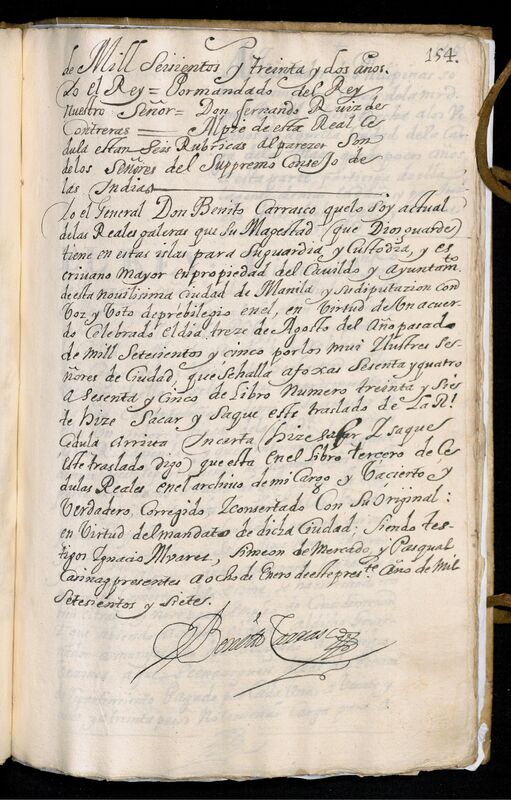 154.
de Mill Seisientos y treinta y dos años.
Yo el Rey = Pormandado del Rey
nuestro Señor = Don fernando Ruiz de
Contreras = Alpie de esta Real Ce
dula estan Seis Rubricas al parezer Son
delos Señores del Suppremo Consejo de
las Indias
Yo el General Don Benito Carrasco quelo Soy actual
delas Reales galeras que Su Magestad (que Dios guarde)
tiene en estas islas para Suguardia y Custodia, y es
criuano Mayor enpropiedad del Cauildo y Ayuntamto
deesta nouilisima Ciudad de Manila y Sudiputazion con
Voz y Voto deprebilegio enel, en Virtud de Un acuer
do Celebrado el dia treze de Agosto del Año pasado
de mill Setesientos y cinco porlos mui Ilustres Se-
ñores de Ciudad que Sehalla afoxas Sesenta y quatro
a Sesenta y Cinco de Libro Numero treinta y Sie
te hize Sacar y Saque este traslado de La Rl
Cedula Arriua Incerta (hize sacar Y saque
este traslado digo) que esta enel Libro tercero de Ce
dulas Reales enel archiuo de mi Cargo y Vacierto y
Verdadero, Corregido Yconsertado Con Su Original:
en Virtud del mandato de dicha Ciudad: Siendo tes-
tigos Ignacio Alvares, Simeon de Mercado, y Pasqual
Carinag presentes a ocho de Enero deestepreste Año de Mil
Setesientos y Siete.
Benito Carrasco